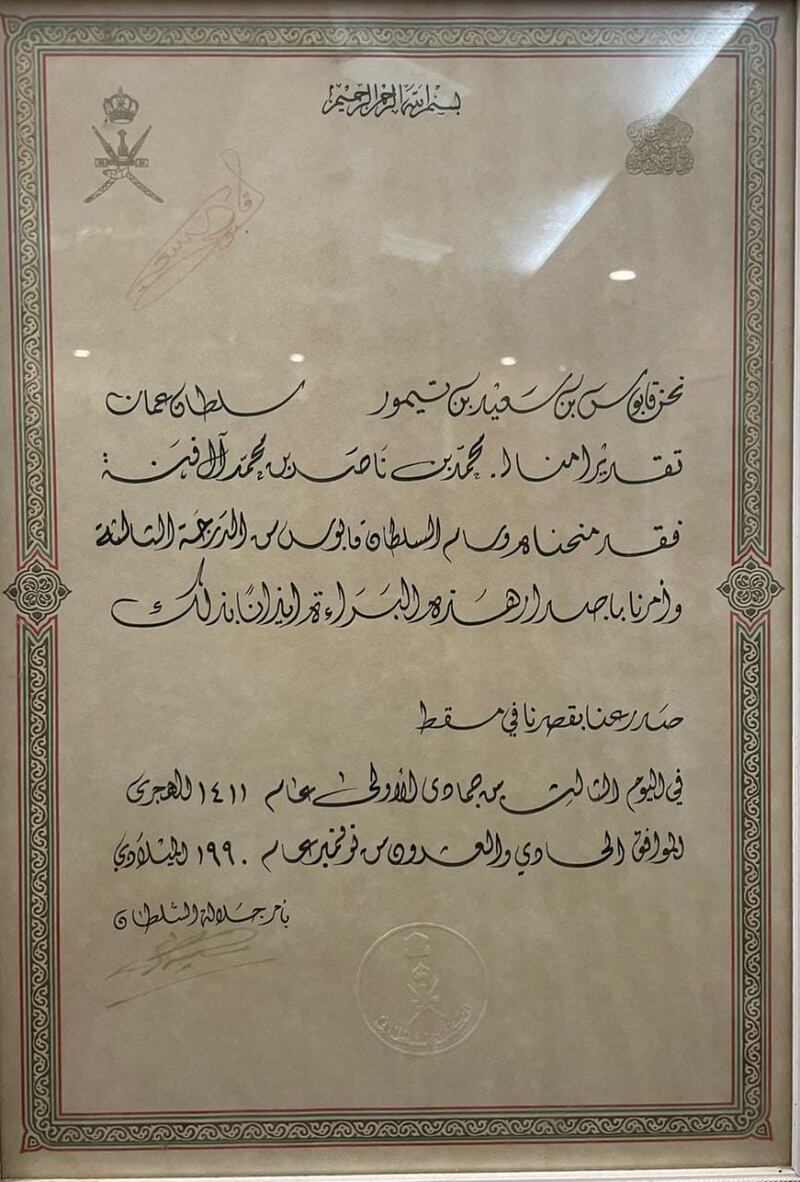 بسم الله الرحمن الرحيم
قابوس
نحن قابوس بن سعيد بن تيمور سلطان عمان
تقديرا منا لـ. محمد بن ناصر بن محمد آل فنة
فقد منحناه وسام السلطان قابوس من الدرجة الثالثة
وأمرنا باصدار هذه البراءة إيذانا بذلك
صدر عنا بقصرنا في مسقط
في اليوم الثالث من جمادى الأولى عام ١٤١١ للهجرى
الموافق الحادي والعشرون من نوفمبر عام ١٩٩٠ الميلادي
بأمر جلالة السلطان